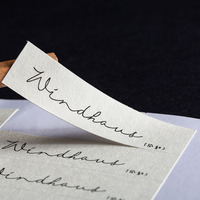 Windhaus
Windhaus
Windhaus